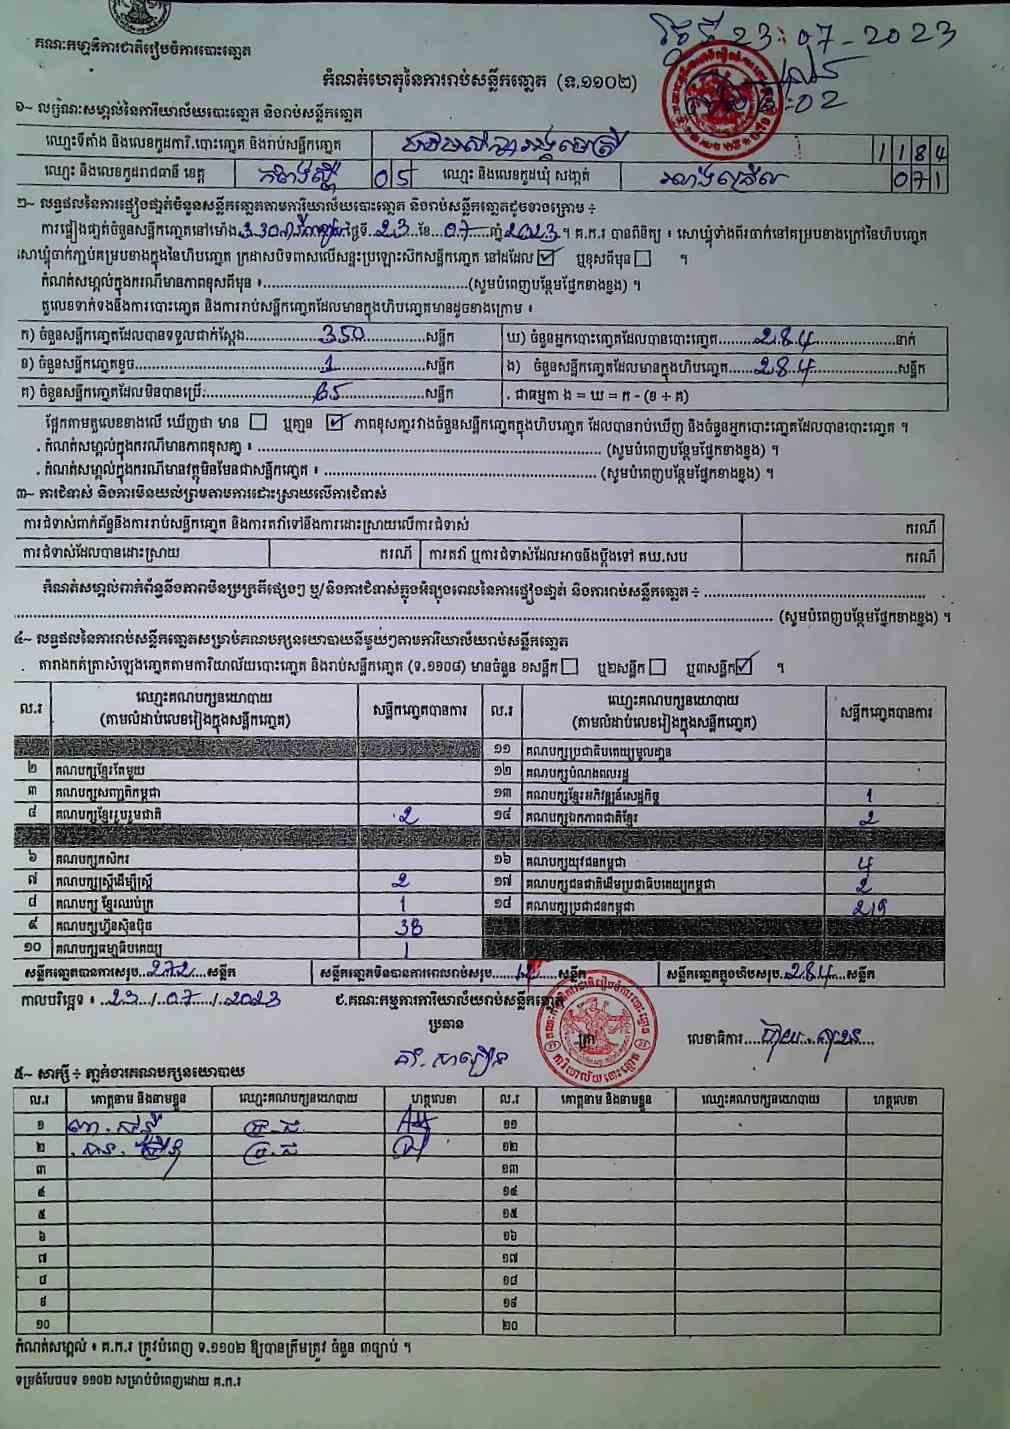 គណៈកម្មាធិការជាតិរៀបចំការបោះឆ្នោត
ថ្ងៃទី 23-07-2023
កំណត់ហេតុនៃការរាប់សន្លឹកឆ្នោត (ទ.១១០២)
:02
១~ លក្ខណៈសម្គាល់នៃការិយាល័យបោះឆ្នោត និងរាប់សន្លឹកឆ្នោត
ឈ្មោះទីតាំង និងលេខកូដការិ.បោះឆ្នោត និងរាប់សន្លឹកឆ្នោត 1184
ឈ្មោះ និងលេខកូដរាជធានី ខេត្ត កំពង់ស្ពឺ 05 ឈ្មោះ និងលេខកូដឃុំ សង្កាត់ 071
២~ លទ្ធផលនៃការផ្ទៀងផ្ទាត់ចំនួនសន្លឹកឆ្នោតតាមការិយាល័យបោះឆ្នោត និងរាប់សន្លឹកឆ្នោតដូចខាងក្រោម ÷
ការផ្ទៀងផ្ទាត់ចំនួនសន្លឹកឆ្នោតនៅម៉ោង ថ្ងៃទី..23...ខែ...07......ឆ្នាំ 2023 ។ គ.ក.រ បានពិនិត្យ ៖ សោឃ្មុំទាំងពីរចាក់នៅគម្របខាងក្រៅនៃហិបឆ្នោត
សោឃ្មុំចាក់ភ្ជាប់គម្របខាងក្នុងនៃហិបឆ្នោត ក្រដាសបិទពាសលើសន្ទះប្រឡោះសឹកសន្លឹកឆ្នោត នៅដដែល ☑ ឬខុសពីមុន ☐ ។
កំណត់សម្គាល់ក្នុងករណីមានភាពខុសពីមុន ៖..........(សូមបំពេញបន្ថែមផ្នែកខាងខ្នង) ។
តួលេខទាក់ទងនឹងការបោះឆ្នោត និងការរាប់សន្លឹកឆ្នោតដែលមានក្នុងហិបឆ្នោតមានដូចខាងក្រោម ៖
ក) ចំនួនសន្លឹកឆ្នោតដែលបានទទួលជាក់ស្តែង..........350..........សន្លឹក ឃ) ចំនួនអ្នកបោះឆ្នោតដែលបានបោះឆ្នោត..........284..........នាក់
ខ) ចំនួនសន្លឹកឆ្នោតខូច..........1..........សន្លឹក ង) ចំនួនសន្លឹកឆ្នោតដែលមានក្នុងហិបឆ្នោត......284..........សន្លឹក
គ) ចំនួនសន្លឹកឆ្នោតដែលមិនបានប្រើ:..........65..........សន្លឹក . ជាធម្មតា ង = ឃ = ក - (ខ + គ)
ផ្អែកតាមតួលេខខាងលើ ឃើញថា មាន ☐ ឬគ្មាន ☑ ភាពខុសគ្នារវាងចំនួនសន្លឹកឆ្នោតក្នុងហិបឆ្នោត ដែលបានរាប់ឃើញ និងចំនួនអ្នកបោះឆ្នោតដែលបានបោះឆ្នោត ។
. កំណត់សម្គាល់ក្នុងករណីមានភាពខុសគ្នា ៖ .......... (សូមបំពេញបន្ថែមផ្នែកខាងខ្នង) ។
. កំណត់សម្គាល់ក្នុងករណីមានវត្ថុមិនមែនជាសន្លឹកឆ្នោត ៖ .......... (សូមបំពេញបន្ថែមផ្នែកខាងខ្នង) ។
៣~ ការជំទាស់ និងការមិនយល់ព្រមតាមការដោះស្រាយលើការជំទាស់
ការជំទាស់ពាក់ព័ន្ធនឹងការរាប់សន្លឹកឆ្នោត និងការតវ៉ាទៅនឹងការដោះស្រាយលើការជំទាស់ ករណី
ការជំទាស់ដែលបានដោះស្រាយ ករណី ការតវ៉ា ឬការជំទាស់ដែលអាចនឹងប្តឹងទៅ គឃ.សប ករណី
កំណត់សម្គាល់ពាក់ព័ន្ធនឹងភាពមិនប្រក្រតីផ្សេងៗ ឬ/និងការជំទាស់ក្នុងអំឡុងពេលនៃការផ្ទៀងផ្ទាត់ និងការរាប់សន្លឹកឆ្នោត ÷ ..........
.......... (សូមបំពេញបន្ថែមផ្នែកខាងខ្នង) ។
៤~ លទ្ធផលនៃការរាប់សន្លឹកឆ្នោតសម្រាប់គណបក្សនយោបាយនីមួយៗតាមការិយាល័យរាប់សន្លឹកឆ្នោត
តារាងកត់ត្រាសំឡេងឆ្នោតតាមការិយាល័យបោះឆ្នោត និងរាប់សន្លឹកឆ្នោត (ទ.១១០៨) មានចំនួន ១សន្លឹក ☐ ឬ២សន្លឹក ☐ ឬ៣សន្លឹក ☑ ។
ល.រ ឈ្មោះគណបក្សនយោបាយ (តាមលំដាប់លេខរៀងក្នុងសន្លឹកឆ្នោត) សន្លឹកឆ្នោតបានការ ល.រ ឈ្មោះគណបក្សនយោបាយ (តាមលំដាប់លេខរៀងក្នុងសន្លឹកឆ្នោត) សន្លឹកឆ្នោតបានការ
១១ គណបក្សប្រជាធិបតេយ្យមូលដ្ឋាន
២ គណបក្សខ្មែរតែមួយ ១២ គណបក្សបំណងពលរដ្ឋ
៣ គណបក្សសញ្ជាតិកម្ពុជា ១៣ គណបក្សខ្មែរអភិវឌ្ឍន៍សេដ្ឋកិច្ច 1
៤ គណបក្សខ្មែររួបរួមជាតិ 2 ១៤ គណបក្សឯកភាពជាតិខ្មែរ 2
៦ គណបក្សកសិករ ១៦ គណបក្សយុវជនកម្ពុជា 4
៧ គណបក្សស្ត្រីដើម្បីស្ត្រី 2 ១៧ គណបក្សជនជាតិដើមប្រជាធិបតេយ្យកម្ពុជា 2
៨ គណបក្ស ខ្មែរឈប់ក្រ 1 ១៨ គណបក្សប្រជាជនកម្ពុជា 219
៩ គណបក្សហ៊្វុនស៊ិនប៉ិច 38
១០ គណបក្សធម្មាធិបតេយ្យ 1
សន្លឹកឆ្នោតបានការសរុប..272....សន្លឹក សន្លឹកឆ្នោតមិនបានការពេលរាប់សរុប.....12.....សន្លឹក សន្លឹកឆ្នោតក្នុងហិបសរុប..284....សន្លឹក
កាលបរិច្ឆេទ ៖ ..23../..07..../.2023 ជ.គណៈកម្មការការិយាល័យរាប់សន្លឹកឆ្នោត
ប្រធាន
ត្រា លេខាធិការ....
៥~ សាក្សី ÷ ភ្នាក់ងារគណបក្សនយោបាយ
ល.រ គោត្តនាម និងនាមខ្លួន ឈ្មោះគណបក្សនយោបាយ ហត្ថលេខា ល.រ គោត្តនាម និងនាមខ្លួន ឈ្មោះគណបក្សនយោបាយ ហត្ថលេខា
១ ប្រ.ជ ១១
២ ប្រ.ជ ១២
៣ ១៣
៤ ១៤
៥ ១៥
៦ ១៦
៧ ១៧
៨ ១៨
៩ ១៩
១០ ២០
កំណត់សម្គាល់ ៖ គ.ក.រ ត្រូវបំពេញ ទ.១១០២ ឱ្យបានត្រឹមត្រូវ ចំនួន ៣ច្បាប់ ។
ទម្រង់បែបបទ ១១០២ សម្រាប់បំពេញដោយ គ.ក.រ